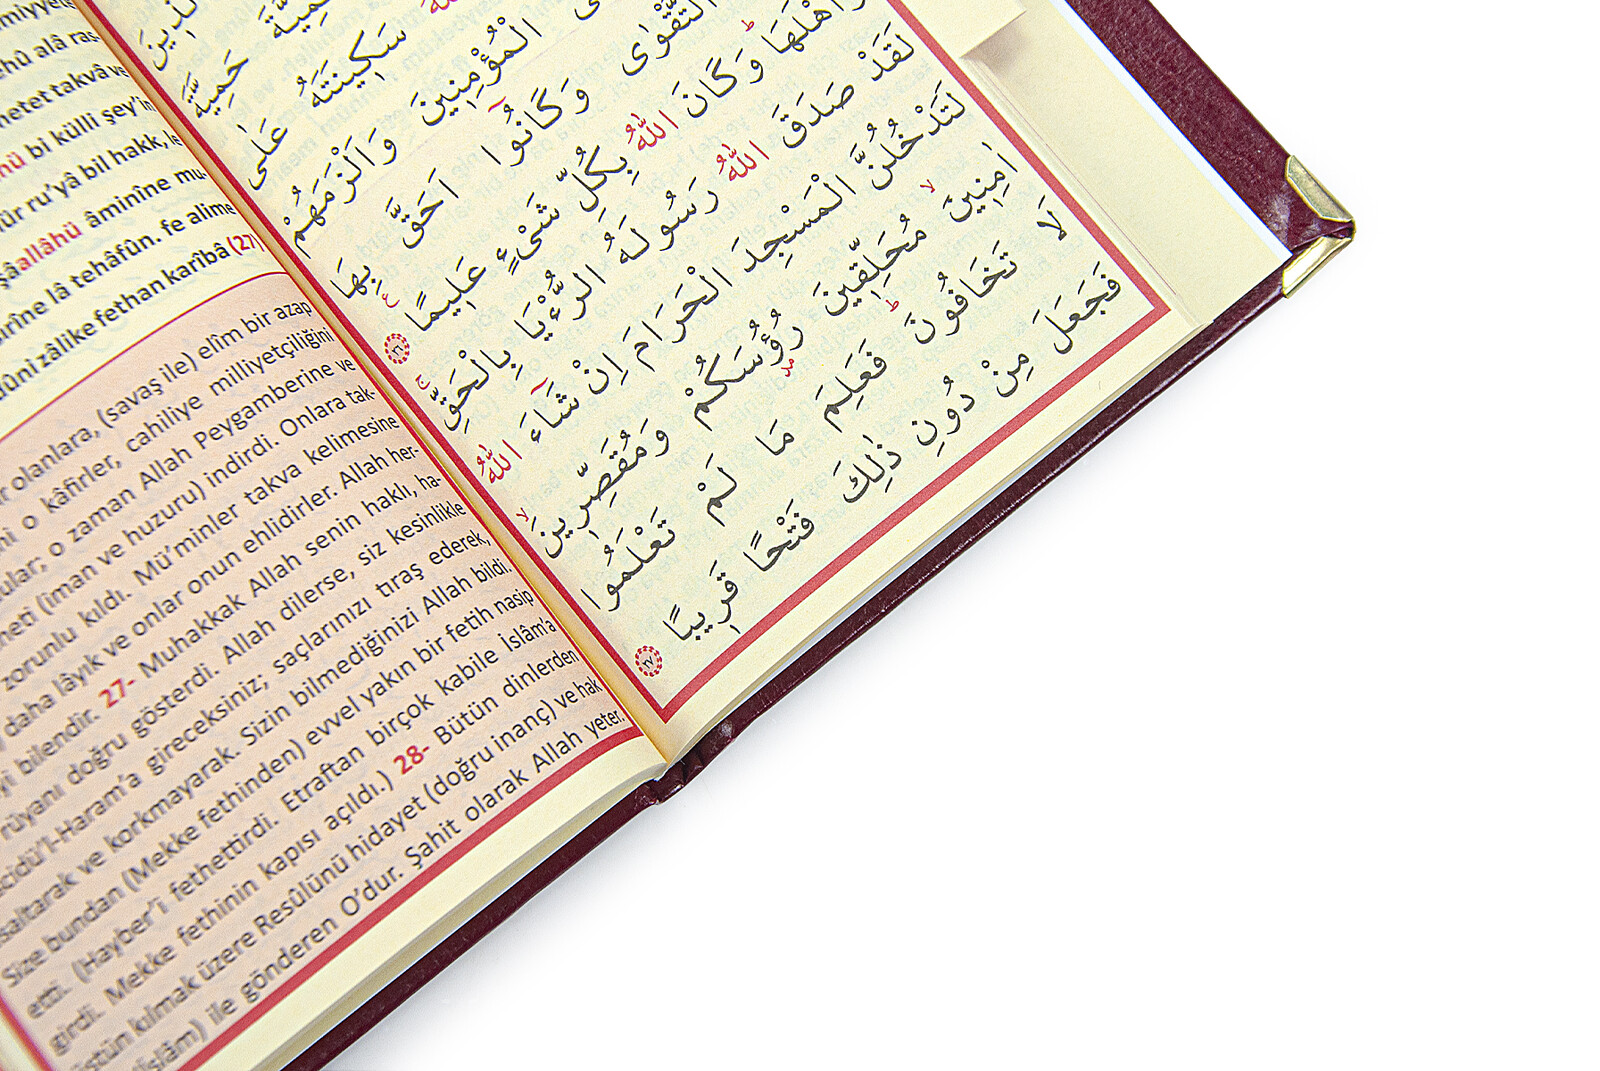 miyyete
ehû alâ ras
metet takvâ ve
nü bi külli şey'in
lür ru'yâ bil hakk, le
şâallâhü âminîne mu-
rîne lâ tehâfûn. fe alime
ûni zâlike fethan karîbâ (27)
r olanlara, (savaş ile) elîm bir azap
ni o kâfirler, cahiliye milliyetçiliğini
ular; o zaman Allah Peygamberine ve
neti (iman ve huzuru) indirdi. Onlara tak-
zorunlu kıldı. Mü'minler takva kelimesine
daha lâyık ve onlar onun ehlidirler. Allah her-
yi bilendir. 27- Muhakkak Allah senin haklı, ha-
rüyanı doğru gösterdi. Allah dilerse, siz kesinlikle
cidü'l-Haram'a gireceksiniz; saçlarınızı tıraş ederek,
saltarak ve korkmayarak. Sizin bilmediğinizi Allah bildi.
Size bundan (Mekke fethinden) evvel yakın bir fetih nasip
etti. (Hayber'i fethettirdi. Etraftan birçok kabile İslâm'a
girdi. Mekke fethinin kapısı açıldı.) 28- Bütün dinlerden
üstün kılmak üzere Resûlünü hidayet (doğru inanç) ve hak
(İslâm) ile gönderen O'dur. Şahit olarak Allah yeter.
الَّذِينَ
حَمِيَّةَ
سَكِينَتَهُ عَلٰى
الْمُؤْمِنِينَ وَاَلْزَمَهُمْ
التَّقْوٰى وَكَانُٓوا اَحَقَّ بِهَا
وَاَهْلَهَاۜ وَكَانَ اللّٰهُ بِكُلِّ شَيْءٍ عَلِيمًا۟ ﴿٢٦﴾
لَقَدْ صَدَقَ اللّٰهُ رَسُولَهُ الرُّءْيَا بِالْحَقِّۚ
لَتَدْخُلُنَّ الْمَسْجِدَ الْحَرَامَ اِنْ شَٓاءَ اللّٰهُ
اٰمِنِينَۙ مُحَلِّقِينَ رُؤُ۫سَكُمْ وَمُقَصِّرِينَۙ
لَا تَخَافُونَۜ فَعَلِمَ مَا لَمْ تَعْلَمُوا
فَجَعَلَ مِنْ دُونِ ذٰلِكَ فَتْحًا قَرِيبًا ﴿٢٧﴾